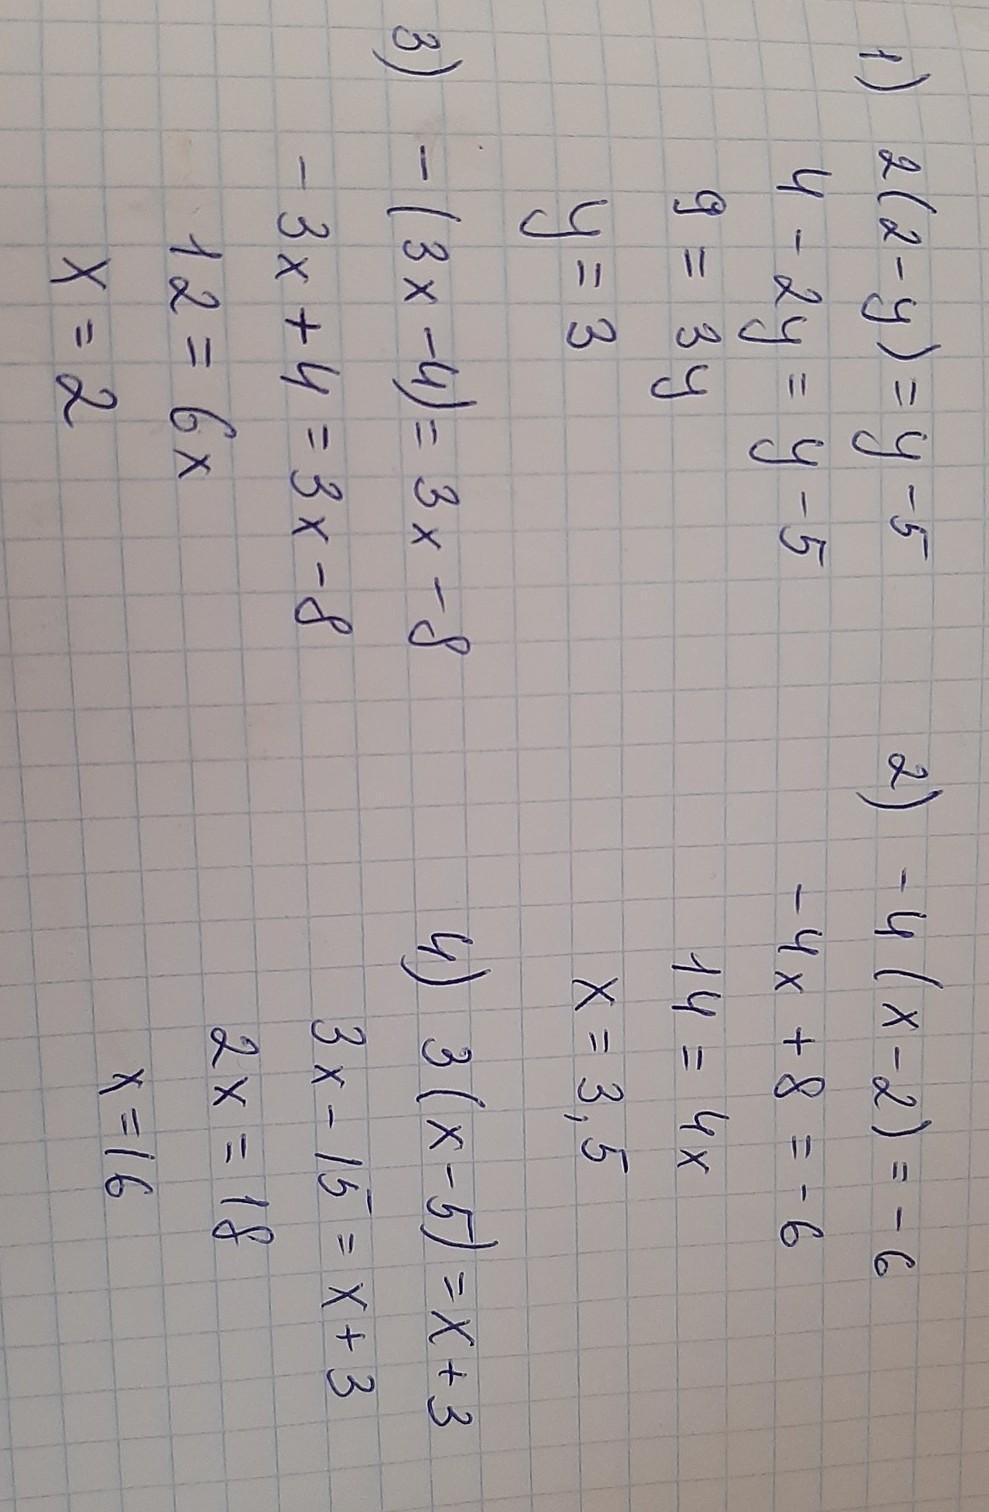 1) 2(2-y)=y-5
4-2y=y-5
9=3y
y=3
2) -4(x-2)=-6
-4x+8=-6
14=4x
x=3,5
3) -(3x-4)=3x-8
-3x+4=3x-8
12=6x
x=2
4) 3(x-5)=x+3
3x-15=x+3
2x=18
x=16